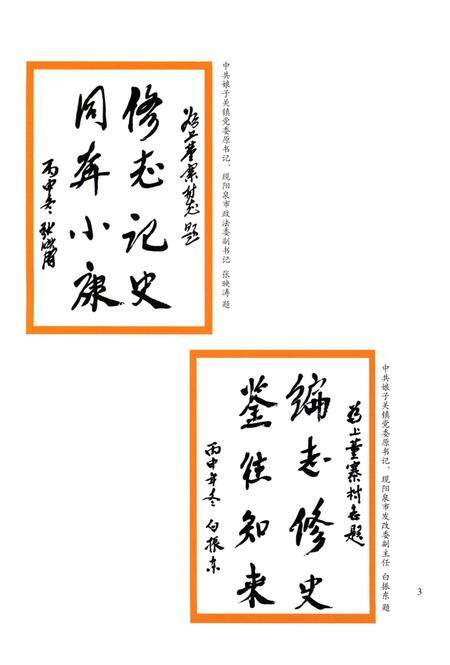 中共娘子关镇党委原书记、现阳泉市政法委副书记 张映涛 题
为上董寨村志题
修志记史
同奔小康
丙申冬 张映涛
中共娘子关镇党委原书记、现阳泉市发改委副主任 白振东 题
为上董寨村志题
编志修史
鉴往知来
丙申年冬 白振东
3